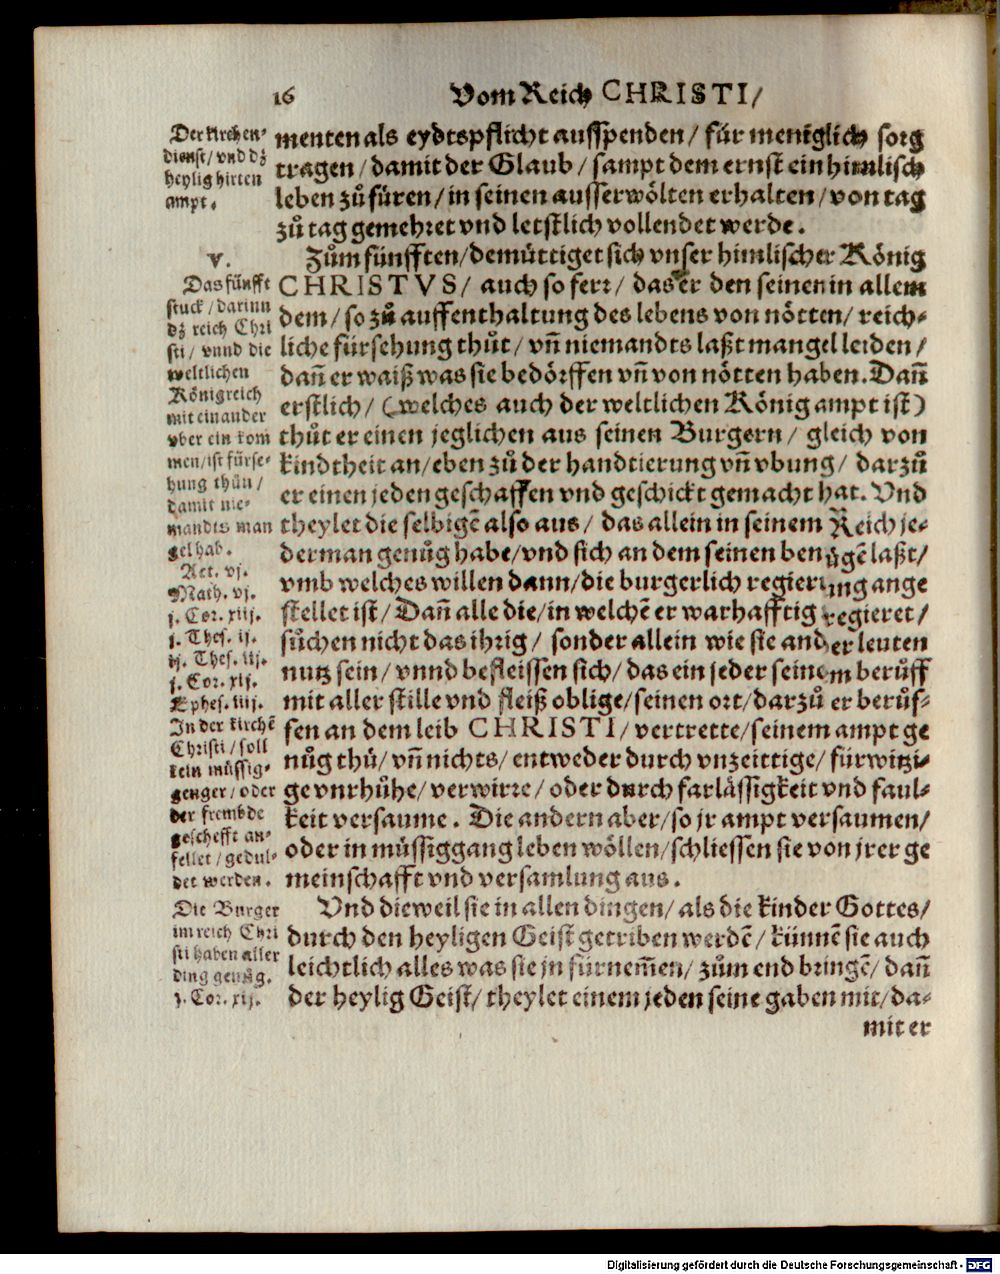 16
Vom Reich CHRISTI/
Der kirchen-
dienst/vnd dz
heylig hirten
ampt.
menten als eydtspflicht ausspenden/ für meniglich sorg
tragen/ damit der Glaub/ sampt dem ernst ein himlisch
leben zů füren/ in seinen ausserwölten erhalten/ von tag
zů tag gemehret vnd letstlich vollendet werde.
V.
Das fünfft
stuck/ darinn
dz reich Chri
sti/ vnnd die
weltlichen
Königreich
mit einander
vber ein kom
men/ist fürse-
hung thůn/
damit nie-
mandts man
gel hab.
Act. vj.
Math. vj.
j. Cor. xiij.
j. Thes. ij.
ij. Thes. iij.
j. Cor. xij.
Ephes. iiij.
In der kirchē
Christi/ soll
kein müssig-
genger/ oder
der frembde
geschefft an-
fellet/ gedul-
det werden.
Zům fünfften/ demüttiget sich vnser himlischer König
CHRISTVS/ auch so ferr/ das er den seinen in allem
dem/ so zů auffenthaltung des lebens von nötten/ reich-
liche fürsehung thůt/ vñ niemandts laßt mangel leiden/
dañ er waiß was sie bedörffen vñ von nötten haben. Dañ
erstlich/ (welches auch der weltlichen König ampt ist)
thůt er einen jeglichen aus seinen Burgern/ gleich von
kindtheit an/ eben zů der handtierung vñ vbung/ darzů
er einen jeden geschaffen vnd geschickt gemacht hat. Vnd
theylet die selbigē also aus/ das allein in seinem Reich je-
derman genůg habe/ vnd sich an dem seinen benůgē laßt/
vmb welches willen dann/ die burgerlich regierung ange
stellet ist/ Dañ alle die/ in welchē er warhafftig regieret/
sůchen nicht das ihrig/ sonder allein wie sie ander leuten
nutz sein/ vnnd befleissen sich/ das ein jeder seinem berůff
mit aller stille vnd fleiß oblige/ seinen ort/ darzů er berůf-
fen an dem leib CHRISTI/ vertrette/ seinem ampt ge
nůg thů/ vñ nichts/ entweder durch vnzeittige/ fürwitzi-
ge vnrhůhe/ verwirre/ oder durch farlässigkeit vnd faul-
keit versaume. Die andern aber/ so jr ampt versaumen/
oder in müssiggang leben wöllen/ schliessen sie von jrer ge
meinschafft vnd versamlung aus.
Die Burger
im reich Chri
sti haben aller
ding genůg.
j. Cor. xij.
Vnd dieweil sie in allen dingen/ als die kinder Gottes/
durch den heyligen Geist getriben werdē/ künnē sie auch
leichtlich alles was sie jn fürnem̃en/ zům end bringē/ dañ
der heylig Geist/ theylet einem jeden seine gaben mit/ da-
mit er
Digitalisierung gefördert durch die Deutsche Forschungsgemeinschaft - DFG